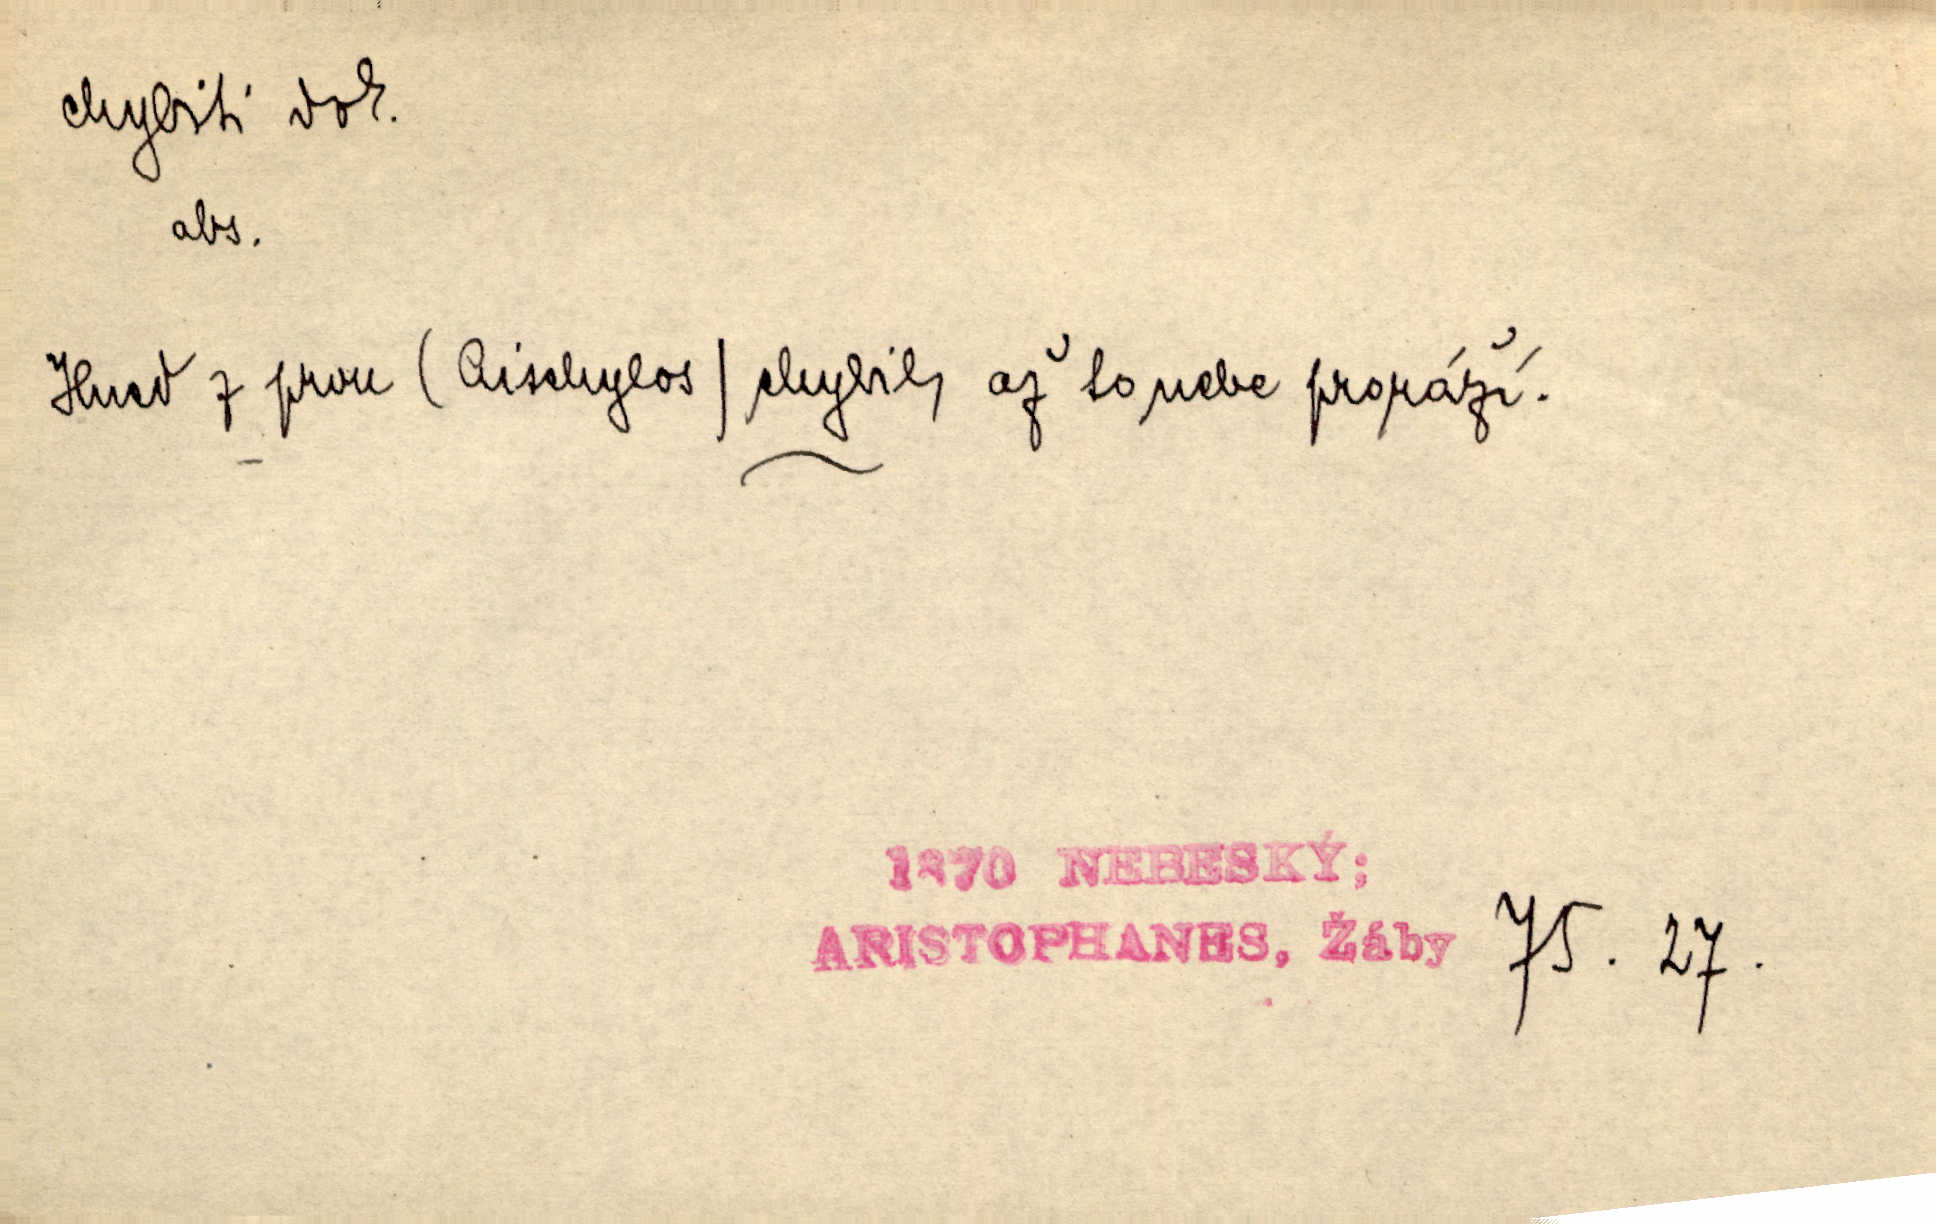 chybiti dok.
abs.
Hned z prou (Aischylos) chybil, až to nebe proráží.
1870 NEBESKÝ;
ARISTOPHANES, Žáby 75. 27.